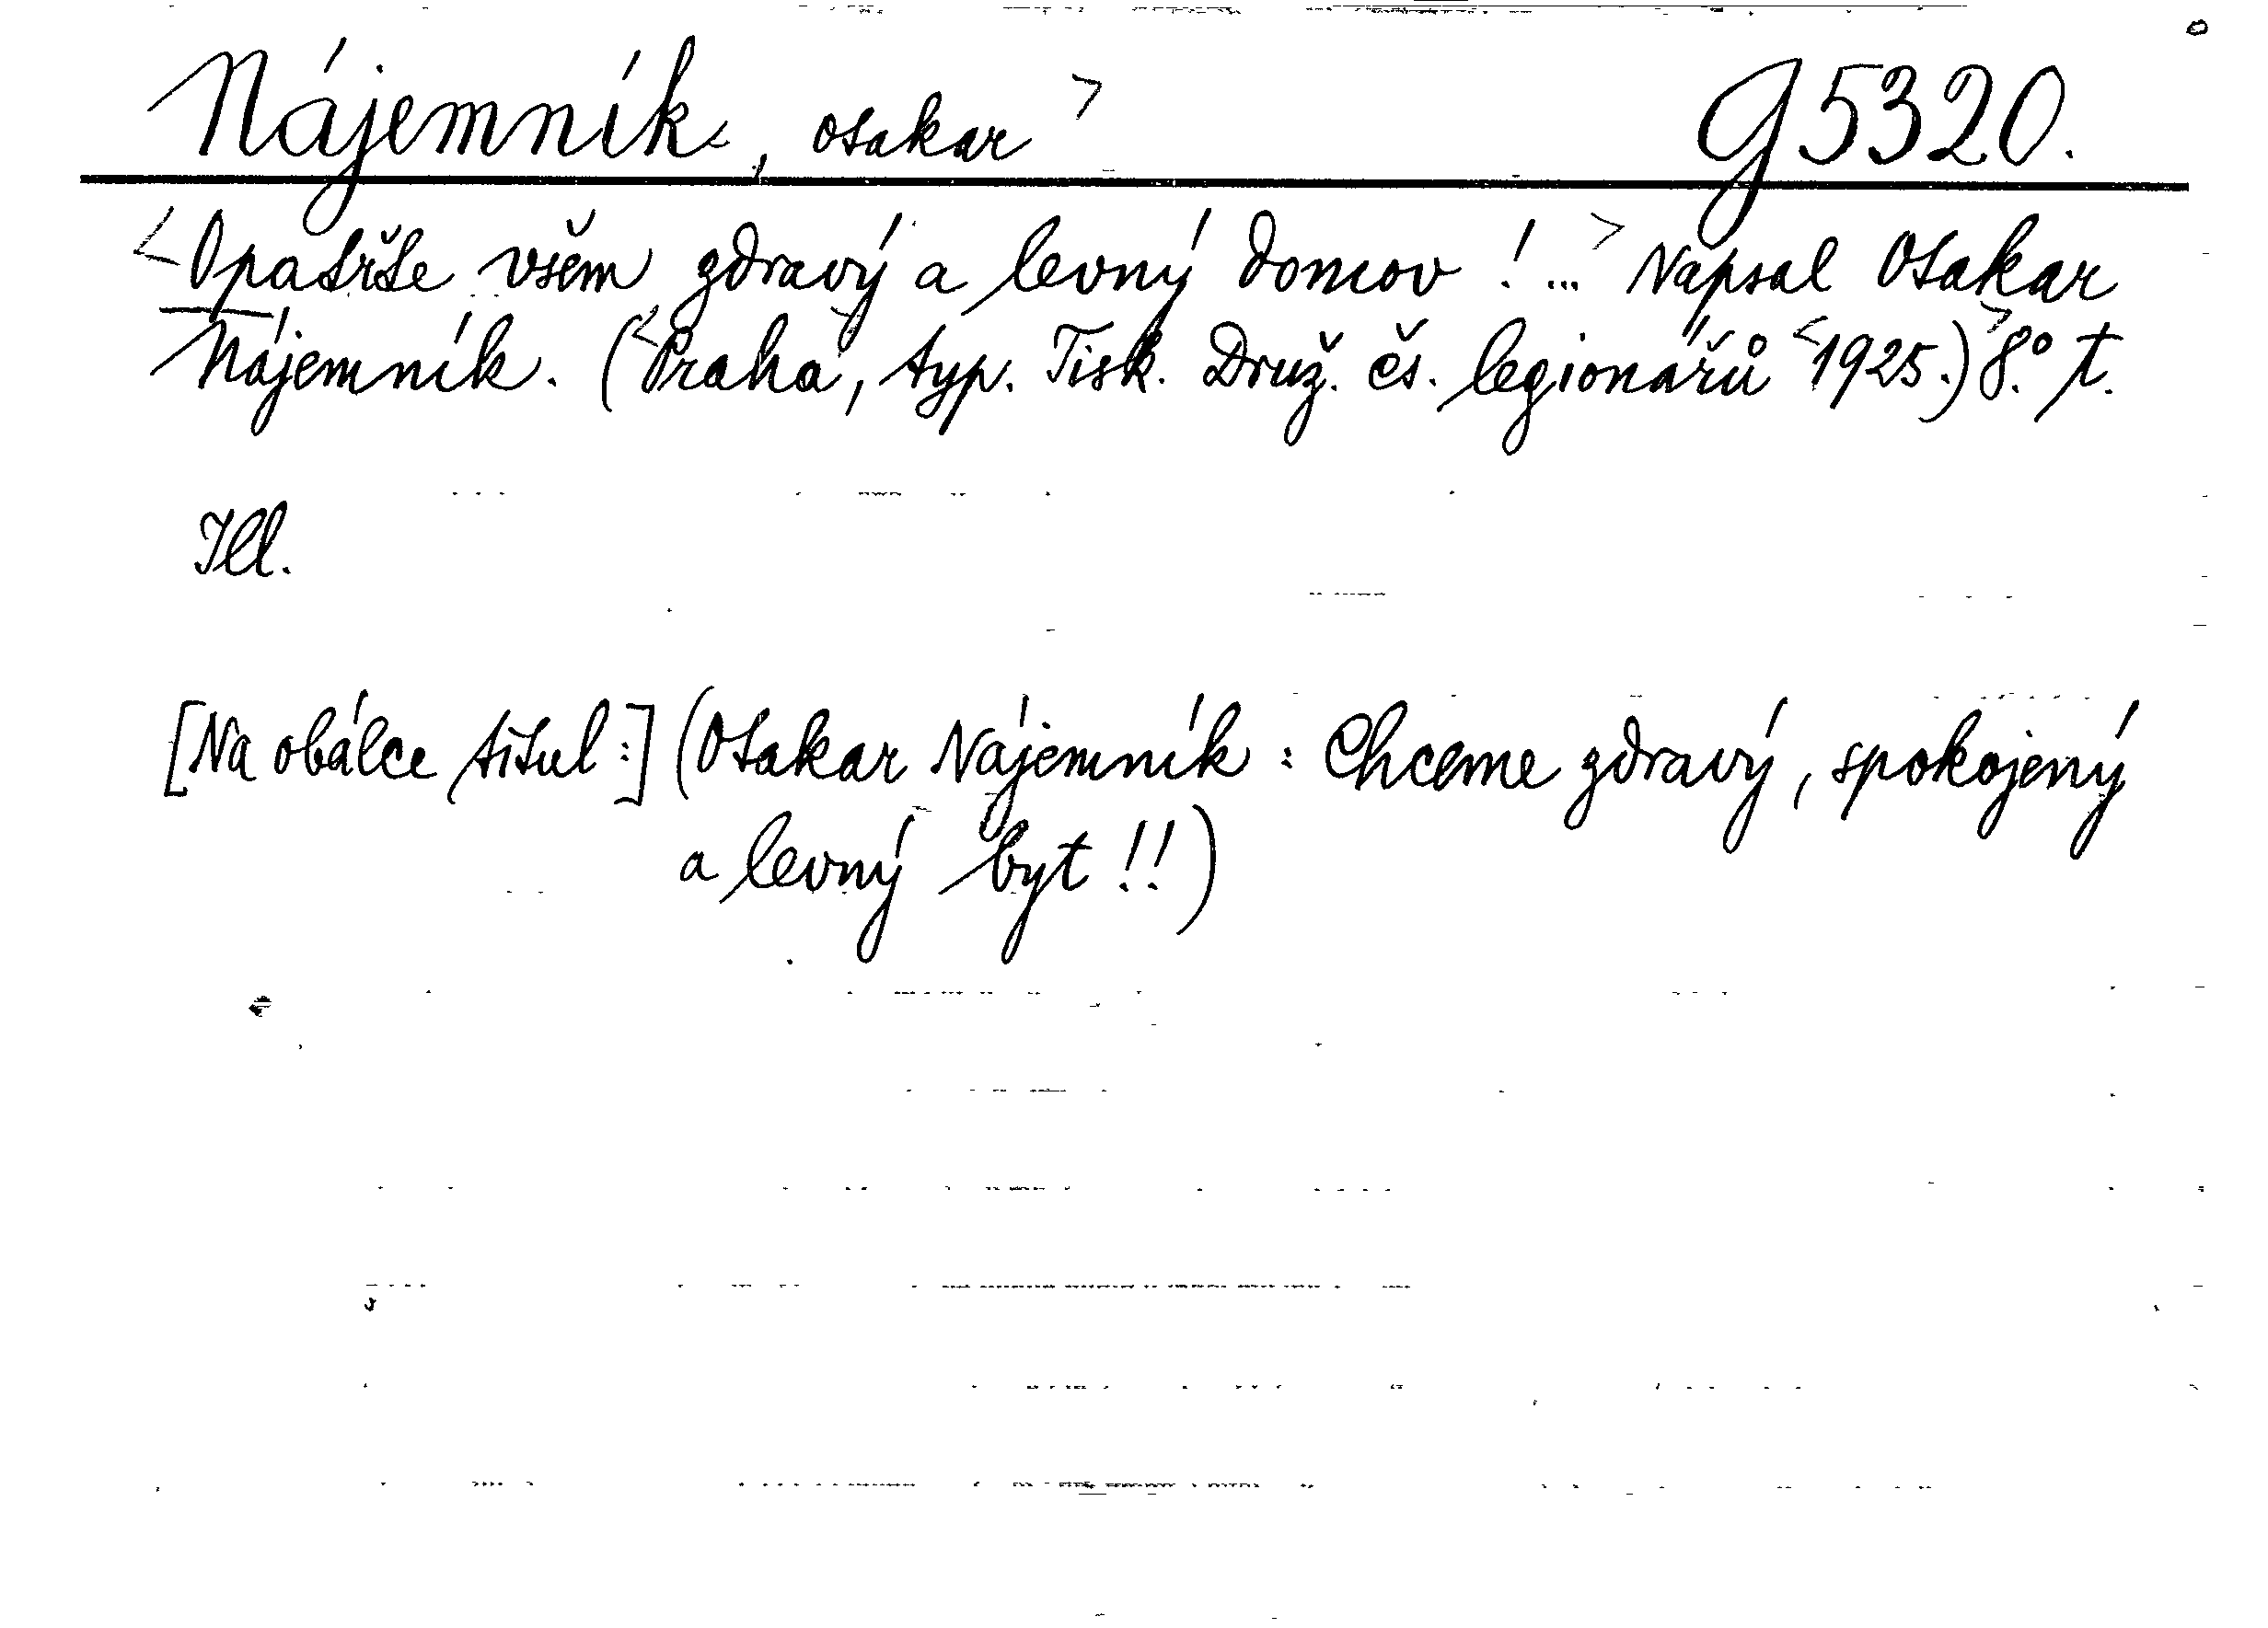 Nájemník, Otakar g 5320.
<Opatřte všem zdravý a levný domov!...> Napsal Otakar
Nájemník. (<Praha, typ. Tisk. Druž. čs. legionářů <1925.)> 8.° t.
Ill.
[Na obálce titul:] (Otakar Nájemník: Chceme zdravý, spokojený
a levný byt!!)